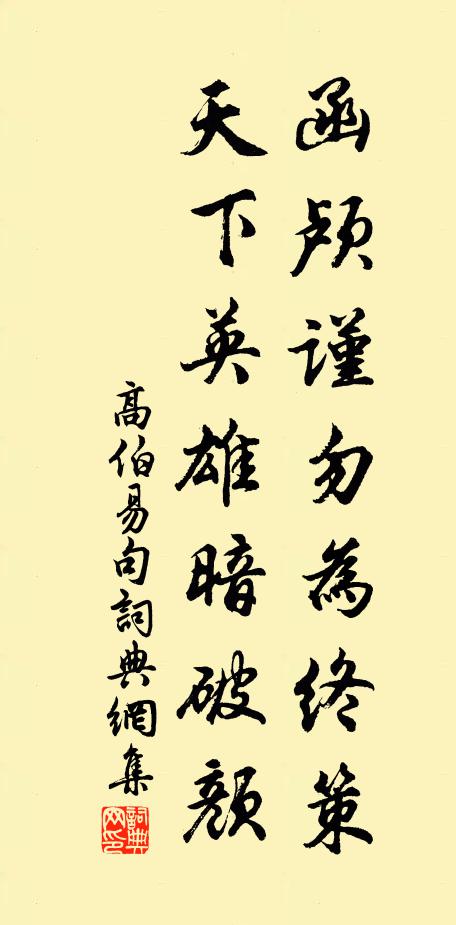 函顾謹勿為終策
天下英雄暗破顏
高伯易句詞典網集
詞典網印